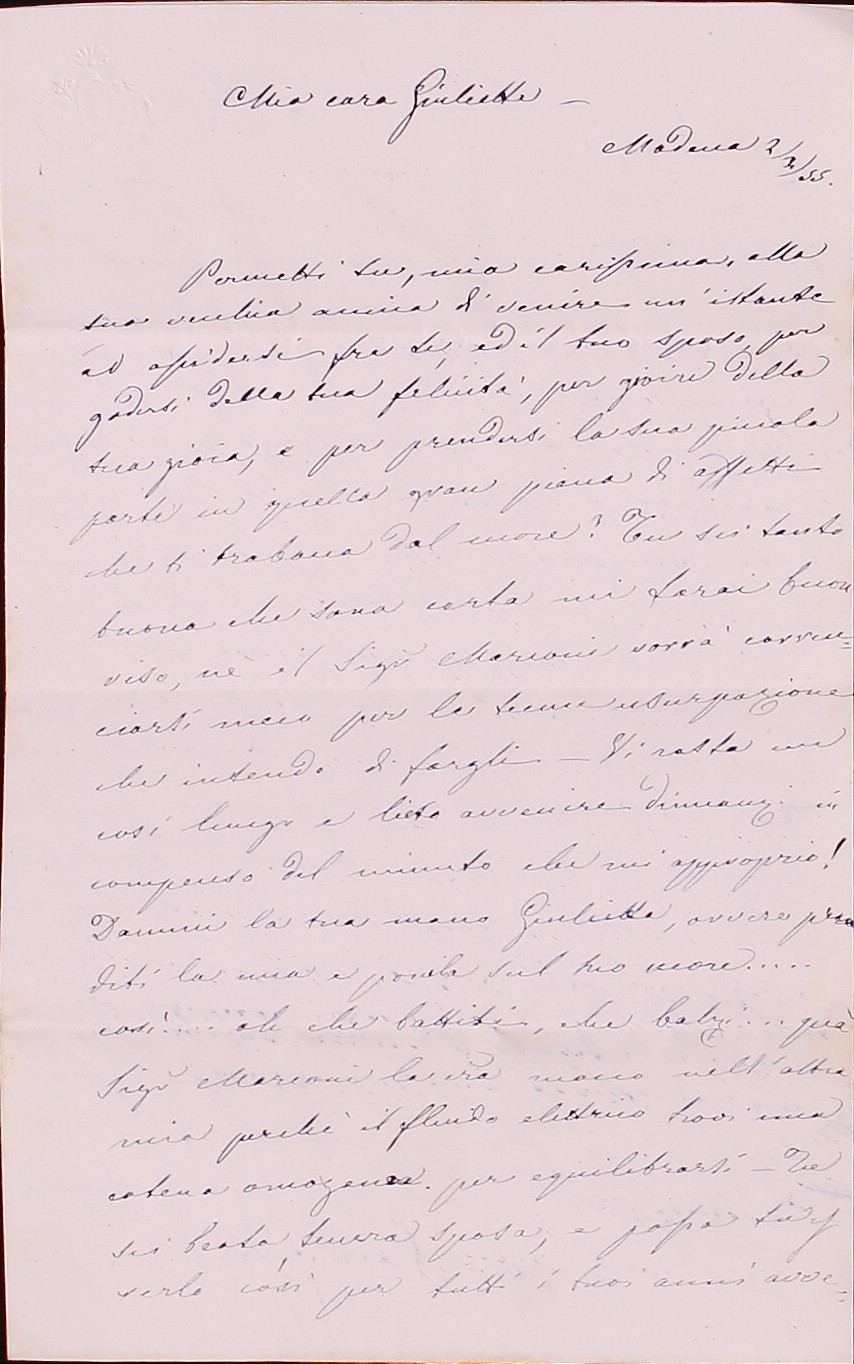 Mia cara Giulietta —
Modena 2/X/55.
Permetti tu, mia carissima, alla
tua vecchia amica di venire un' istante
ad assidersi fra te, ed il tuo sposo, per
godersi della tua felicità, per gioire della
tua gioia, e per prendersi la sua piccola
parte in quella gran piena di affetti
che ti trabocca dal cuore! Tu sei tanto
buona che sono certa mi farai buon
viso, nè il Sigr Marconi vorrà corruc=
ciarsi meco per la tenue usurpazione
che intendo di fargli — Vi resta un
così lungo e lieto avvenire dinnanzi in
compenso del minuto che mi approprio!
Dammi la tua mano Giulietta, ovvero pren
diti la mia e ponila sul tuo cuore....
così!... oh che battiti, che balzi... quà
Sigr Marconi la sua mano nell'altra
mia perchè il fluido elettrico trovi una
catena omogenea per equilibrarsi — Tu
sei beata tenera sposa, e possa tu es
serlo così per tutti i tuoi anni avve=